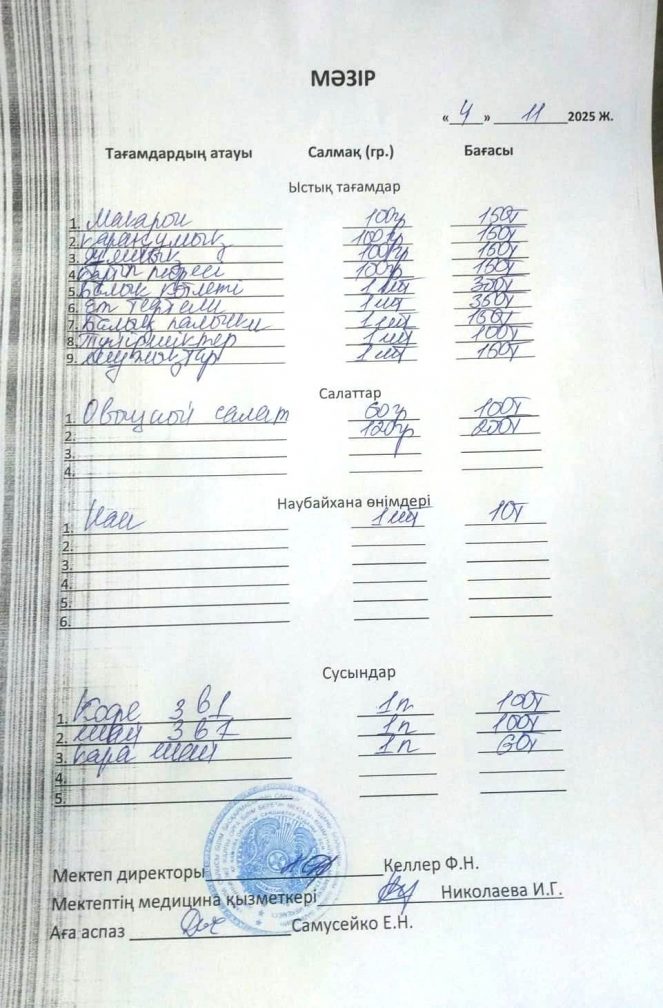 МӘЗІР
« 4 » 11 2025 Ж.
Тағамдардың атауы Салмақ (гр.) Бағасы
Ыстық тағамдар
1. Макарон 100гр 150т
2. қарақұмық 100гр 150т
3. 100гр 150т
4. 100гр 150т
5. Балық котлеті 1 шт 300т
6. Ет тефтели 1 шт 350т
7. Балық палочки 1 шт 150т
8. 1 шт 100т
9. 1 шт 150т
Салаттар
1. Овощной салат 60гр 100т
2. 120гр 200т
3.
4.
Наубайхана өнімдері
1. Нан 1 шт 10т
2.
3.
4.
5.
6.
Сусындар
1. Кофе 3 в 1 1п 100т
2. шай 3 в 1 1п 100т
3. қара шай 1п 60т
4.
5.
Мектеп директоры Келлер Ф.Н.
Мектептің медицина қызметкері Николаева И.Г.
Аға аспаз Самусейко Е.Н.